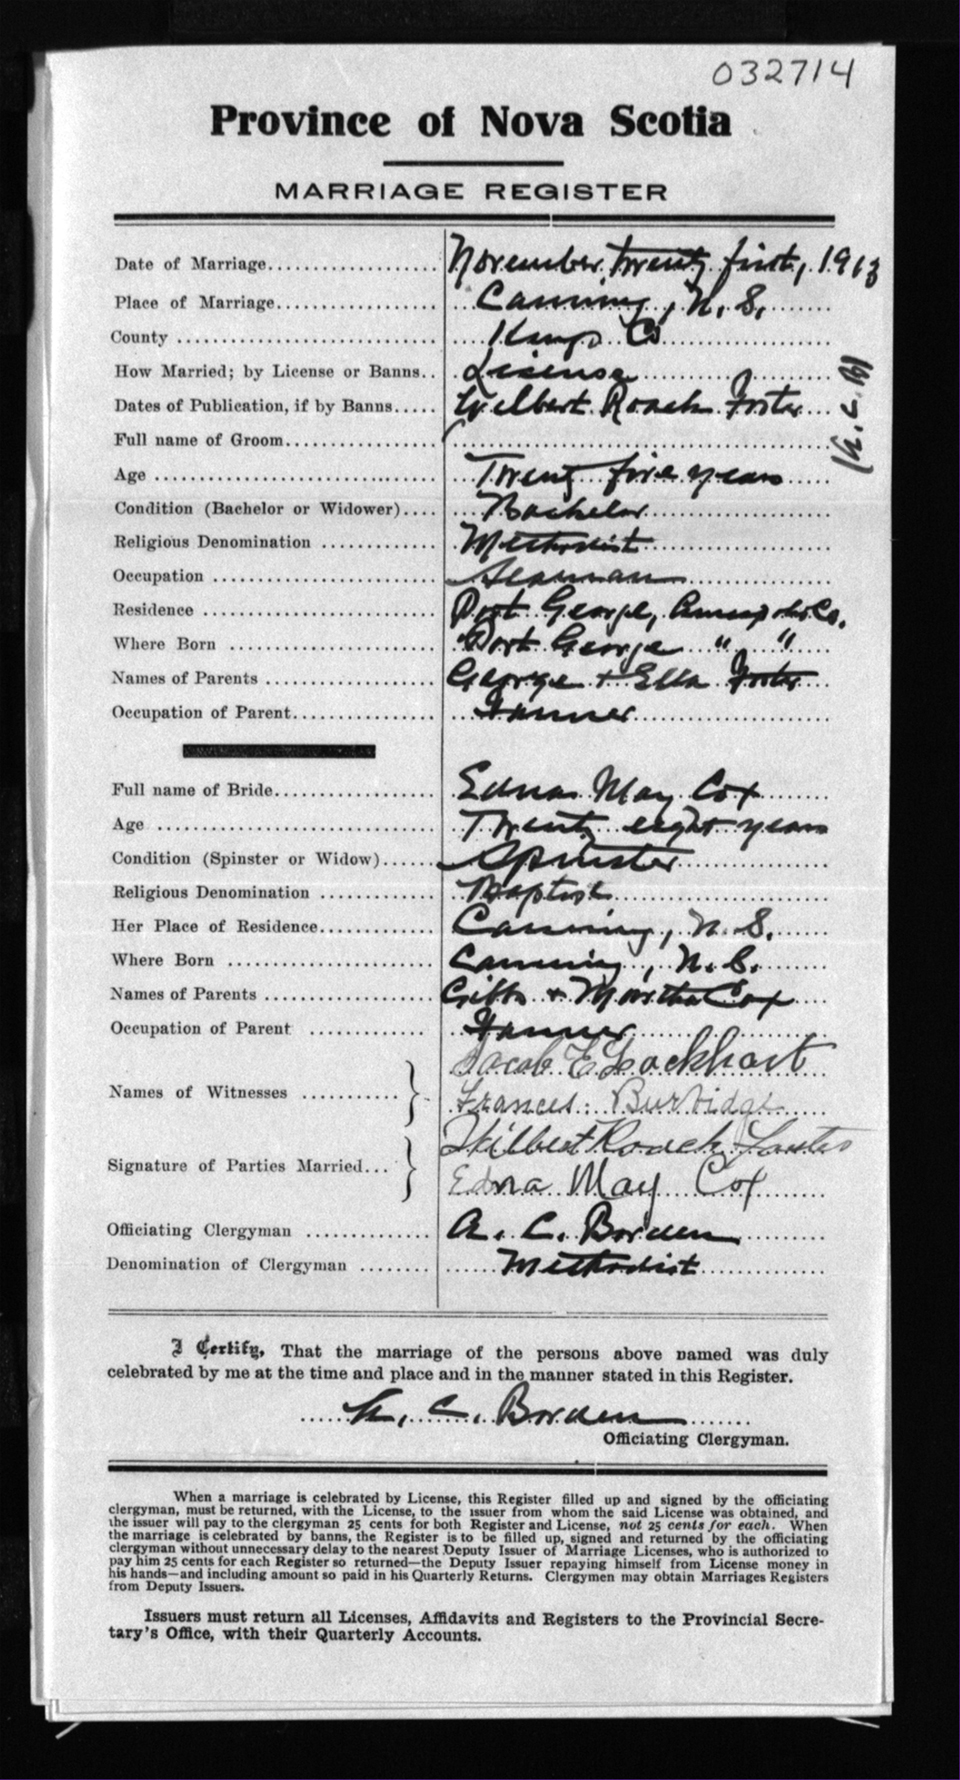 032714
Province of Nova Scotia
MARRIAGE REGISTER
Date of Marriage.................... November twenty first, 1913
Place of Marriage................... Canning, N. S.
County ............................. Kings Co
How Married; by License or Banns.. License
Dates of Publication, if by Banns..... Wilbert Roach Foster
Full name of Groom..................
Age ................................ Twenty five years
Condition (Bachelor or Widower).... Bachelor
Religious Denomination ............. Methodist
Occupation ......................... Seaman
Residence .......................... Port George, Annapolis Co.
Where Born ......................... Port George " "
Names of Parents ................... George + Ella Foster
Occupation of Parent................ Farmer
Full name of Bride.................. Edna May Cox
Age ................................ Twenty eight years
Condition (Spinster or Widow)...... Spinster
Religious Denomination ............. Baptist
Her Place of Residence.............. Canning, N. S.
Where Born ......................... Canning, N. S.
Names of Parents ................... Gibbs + Martha Cox
Occupation of Parent ............... Farmer
Names of Witnesses ............ } Jacob E Lockhart
Frances Burbidge
Signature of Parties Married... } Wilbert Roach Foster
Edna May Cox
Officiating Clergyman .............. A. C. Borden
Denomination of Clergyman ........ Methodist
A. C. B
I Certify, That the marriage of the persons above named was duly
celebrated by me at the time and place and in the manner stated in this Register.
A. C. Borden
Officiating Clergyman.
When a marriage is celebrated by License, this Register filled up and signed by the officiating
clergyman, must be returned, with the License, to the issuer from whom the said License was obtained, and
the issuer will pay to the clergyman 25 cents for both Register and License, not 25 cents for each. When
the marriage is celebrated by banns, the Register is to be filled up, signed and returned by the officiating
clergyman without unnecessary delay to the nearest Deputy Issuer of Marriage Licenses, who is authorized to
pay him 25 cents for each Register so returned—the Deputy Issuer repaying himself from License money in
his hands—and including amount so paid in his Quarterly Returns. Clergymen may obtain Marriages Registers
from Deputy Issuers.
Issuers must return all Licenses, Affidavits and Registers to the Provincial Secre-
tary's Office, with their Quarterly Accounts.